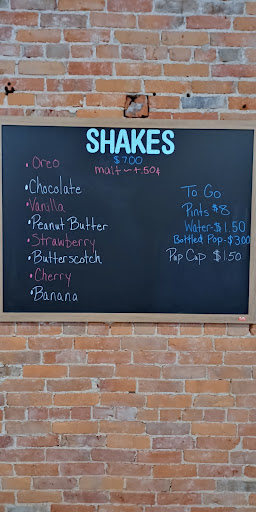 SHAKES
$7.00
malt - +.50¢
• Oreo
• Chocolate
• Vanilla
• Peanut Butter
• Strawberry
• Butterscotch
• Cherry
• Banana
To Go
Pints $8
Water-$1.50
Bottled Pop-$3.00
Pop Cup $1.50